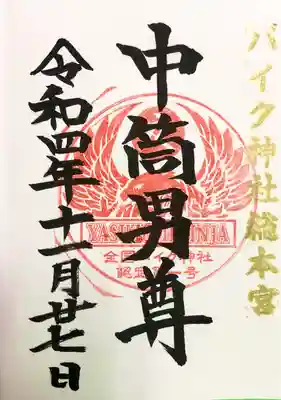 バイク神社総本宮
中筒男尊
令和四年十一月廿七日
YASUZUMI JINJA
全国バイク神社
認定第一号